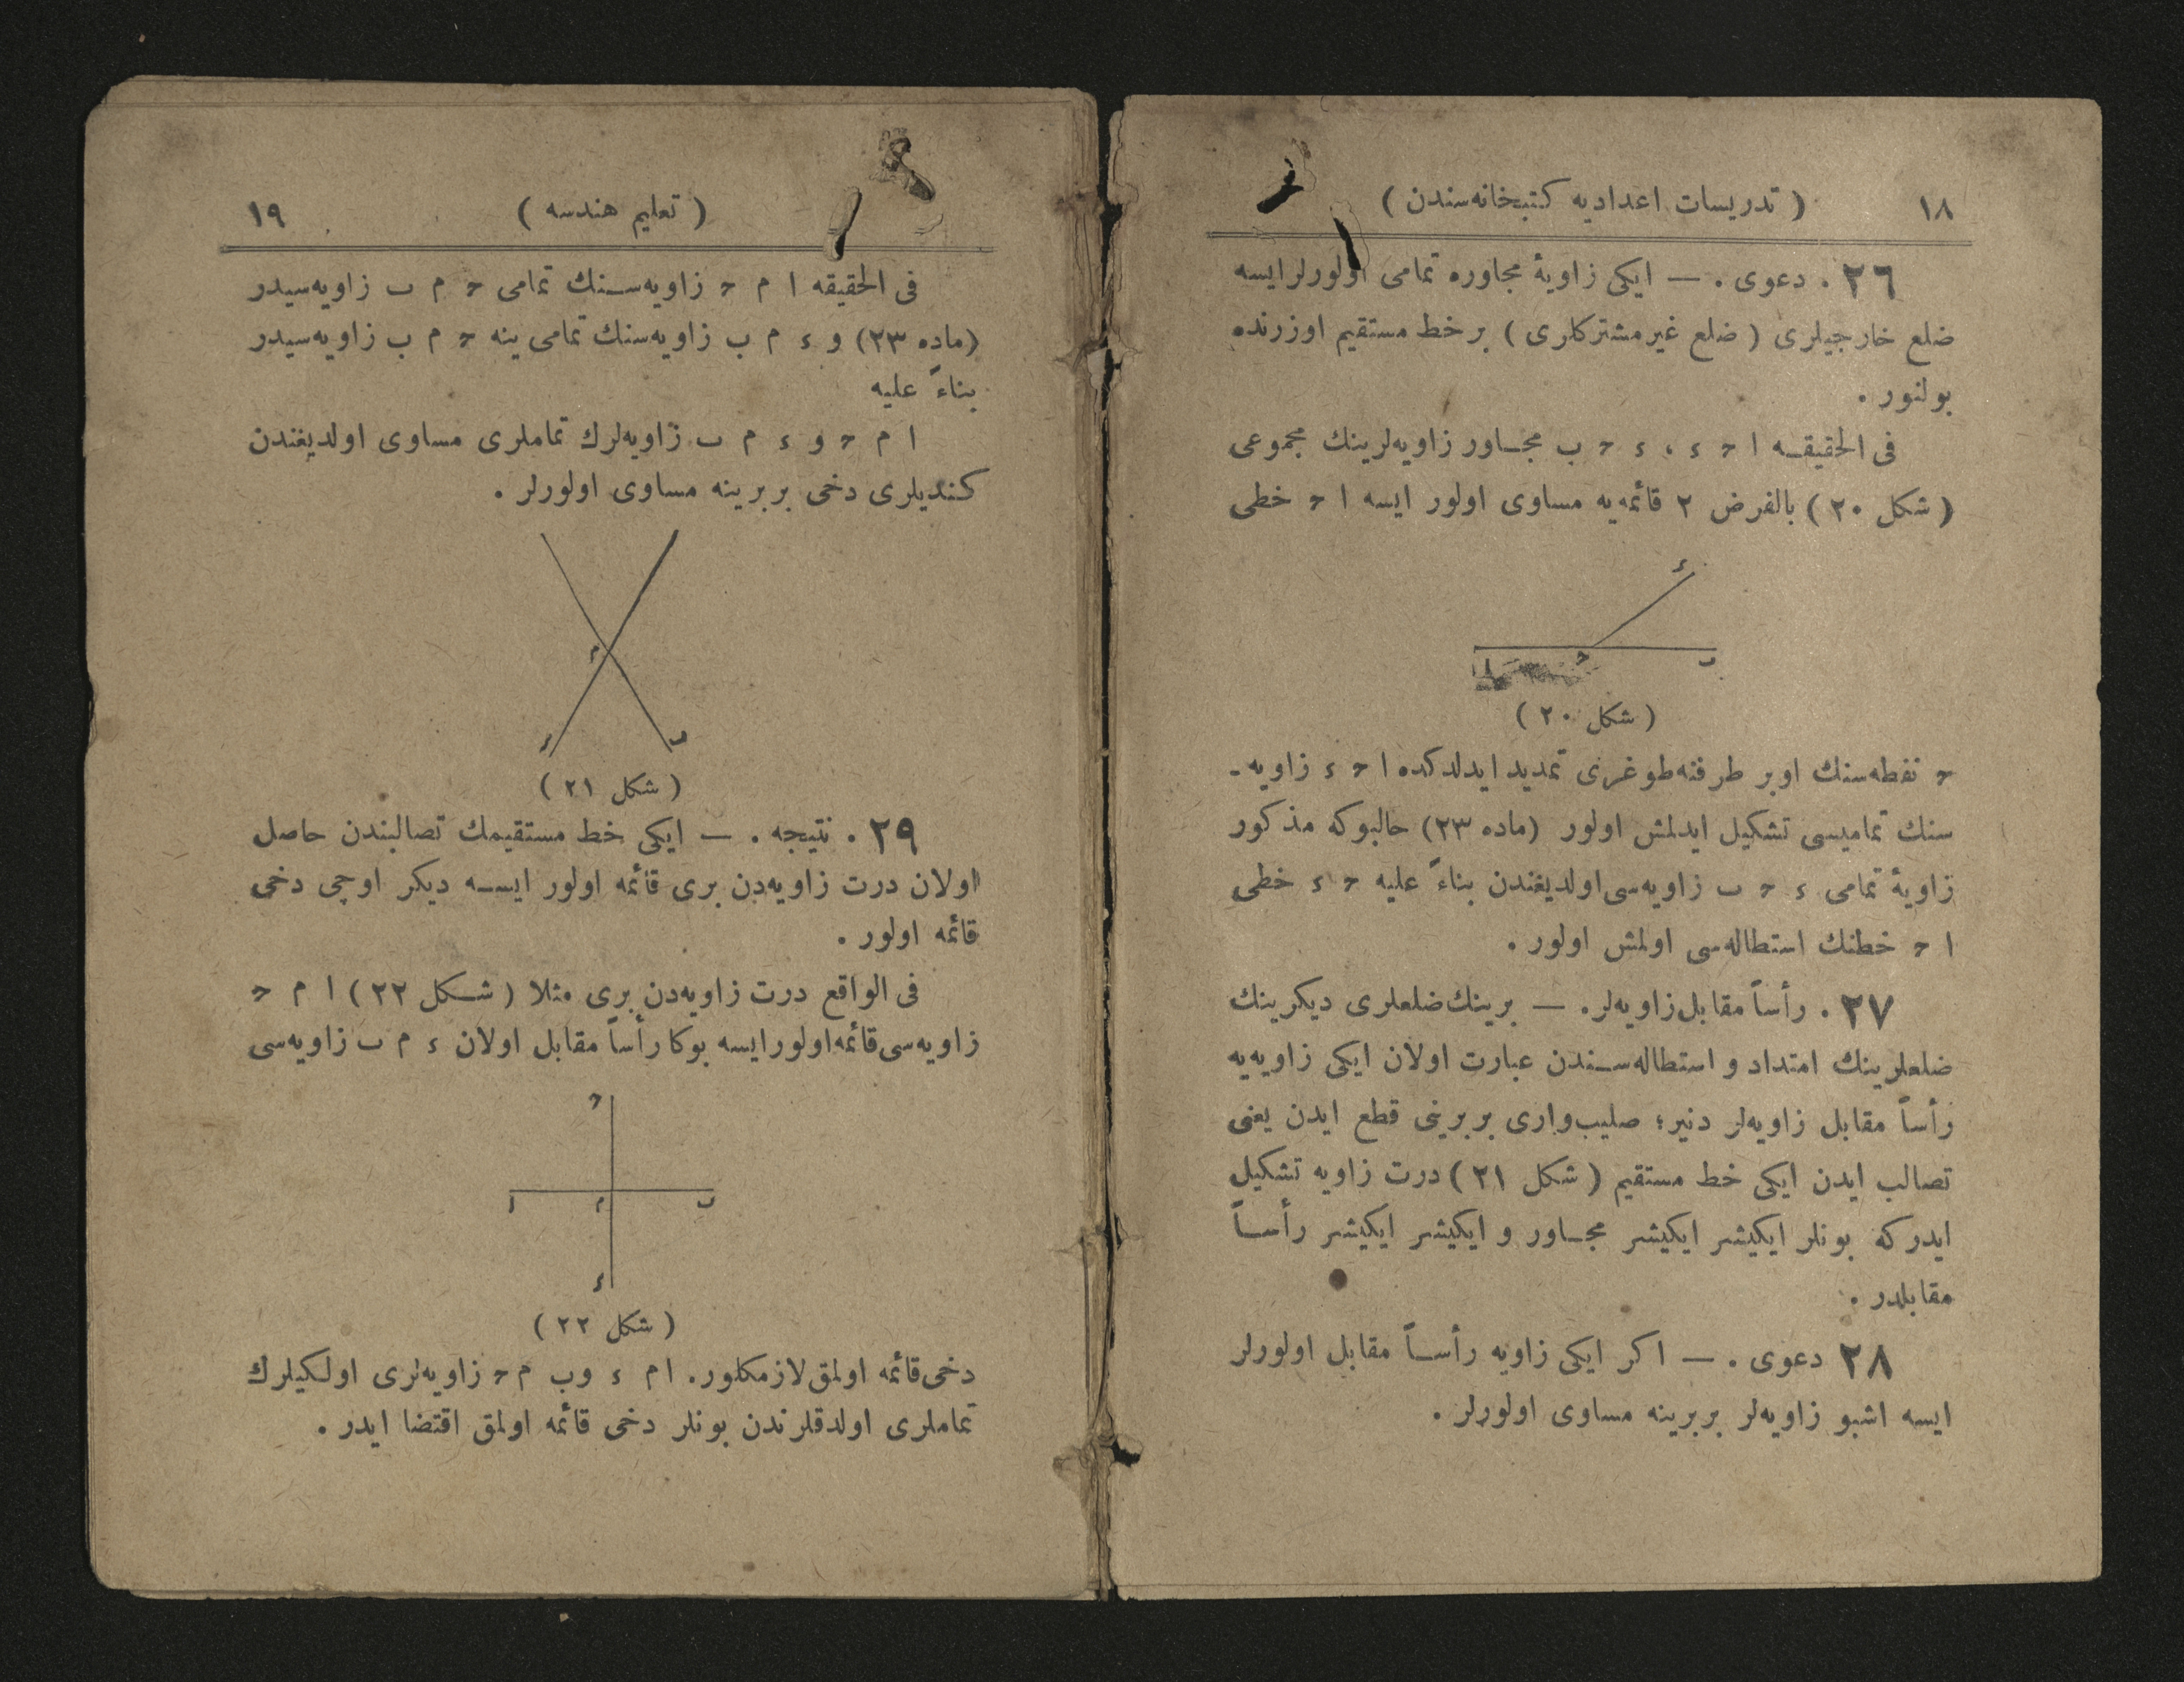 ١٨ ( تدریسات اعدادیه کتبخانه‌سندن )
٢٦ . دعوی . — ایکی زاویهٔ مجاوره تمامی اولورلر ایسه
ضلع خارجیلری ( ضلع غیر مشترکلری ) بر خط مستقیم اوزرنده
بولنور .
فی الحقیقه ا ﺣ ء ، ء ﺣ ب مجاور زاویه‌لرینك مجموعی
( شکل ٢٠ ) بالفرض ٢ قائمه‌یه مساوی اولور ایسه ا ﺣ خطی
ء
ا ﺣ ب
( شکل ٢٠ )
ﺣ نقطه‌سنك اوبر طرفنه طوغری تمدید ایدلدکده ا ﺣ ء زاویه‌ـ
سنك تمامیسی تشکیل ایدلمش اولور (ماده ٢٣) حالبوکه مذکور
زاویهٔ تمامی ء ﺣ ب زاویه‌سی اولدیغندن بناءً علیه ﺣ ء خطی
ا ﺣ خطنك استطاله‌سی اولمش اولور .
٢٧ . رأساً مقابل زاویه‌لر. — برینك ضلعلری دیکرینك
ضلعلرینك امتداد و استطاله‌سندن عبارت اولان ایکی زاویه‌یه
رأساً مقابل زاویه‌لر دنیر؛ صلیب‌واری بربرینی قطع ایدن یعنی
تصالب ایدن ایکی خط مستقیم ( شکل ٢١ ) درت زاویه تشکیل
ایدرکه بونلر ایکیشر ایکیشر مجاور و ایکیشر ایکیشر رأساً
مقابلدر .
٢٨ دعوی . — اکر ایکی زاویه رأساً مقابل اولورلر
ایسه اشبو زاویه‌لر بربرینه مساوی اولورلر .
( تعلیم هندسه ) ١٩
فی الحقیقه ا م ﺣ زاویه‌سنك تمامی ﺣ م ب زاویه‌سیدر
(ماده ٢٣) و ء م ب زاویه‌سنك تمامی ینه ﺣ م ب زاویه‌سیدر
بناءً علیه
ا م ﺣ و ء م ب زاویه‌لرك تماملری مساوی اولدیغندن
کندیلری دخی بربرینه مساوی اولورلر .
م
ء ب
( شکل ٢١ )
٢٩ . نتیجه . — ایکی خط مستقیمك تصالبندن حاصل
اولان درت زاویه‌دن بری قائمه اولور ایسه دیکر اوچی دخی
قائمه اولور .
فی الواقع درت زاویه‌دن بری مثلا ( شکل ٢٢ ) ا م ﺣ
زاویه‌سی قائمه اولور ایسه بوکا رأساً مقابل اولان ء م ب زاویه‌سی
ﺣ
ا م ب
ء
( شکل ٢٢ )
دخی قائمه اولمق لازمکلور. ا م ء و ب م ﺣ زاویه‌لری اولکیلرك
تماملری اولدقلرندن بونلر دخی قائمه اولمق اقتضا ایدر .